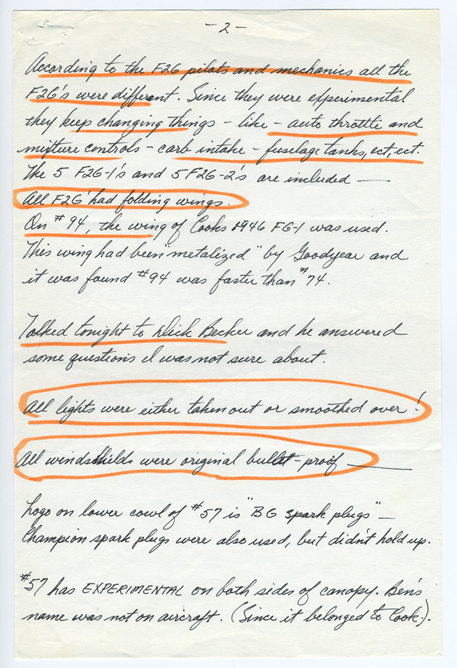 - 2 -
According to the F2G pilots and mechanics all the
F2G's were different. Since they were experimental
they keep changing things - like - auto throttle and
mixture controls - carb intake - fuselage tanks, ect, ect.
The 5 F2G-1's and 5 F2G-2's are included —
All F2G' had folding wings.
On #94, the wing of Cooks 1946 FG-1 was used.
This wing had been "metalized" by Goodyear and
it was found #94 was faster than #74.
Talked tonight to Dick Becker and he answered
some questions I was not sure about.
All lights were either taken out or smoothed over!
All windshields were original bullet-proof —
Logo on lower cowl of #57 is "BG spark plugs" -
Champion spark plugs were also used, but didn't hold up.
#57 has EXPERIMENTAL on both sides of canopy. Ben's
name was not on aircraft. (Since it belonged to Cook.).